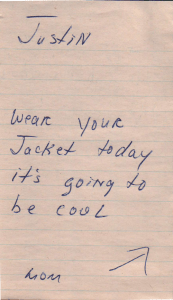 Justin
Wear your
Jacket today
it's going to
be cool
mom